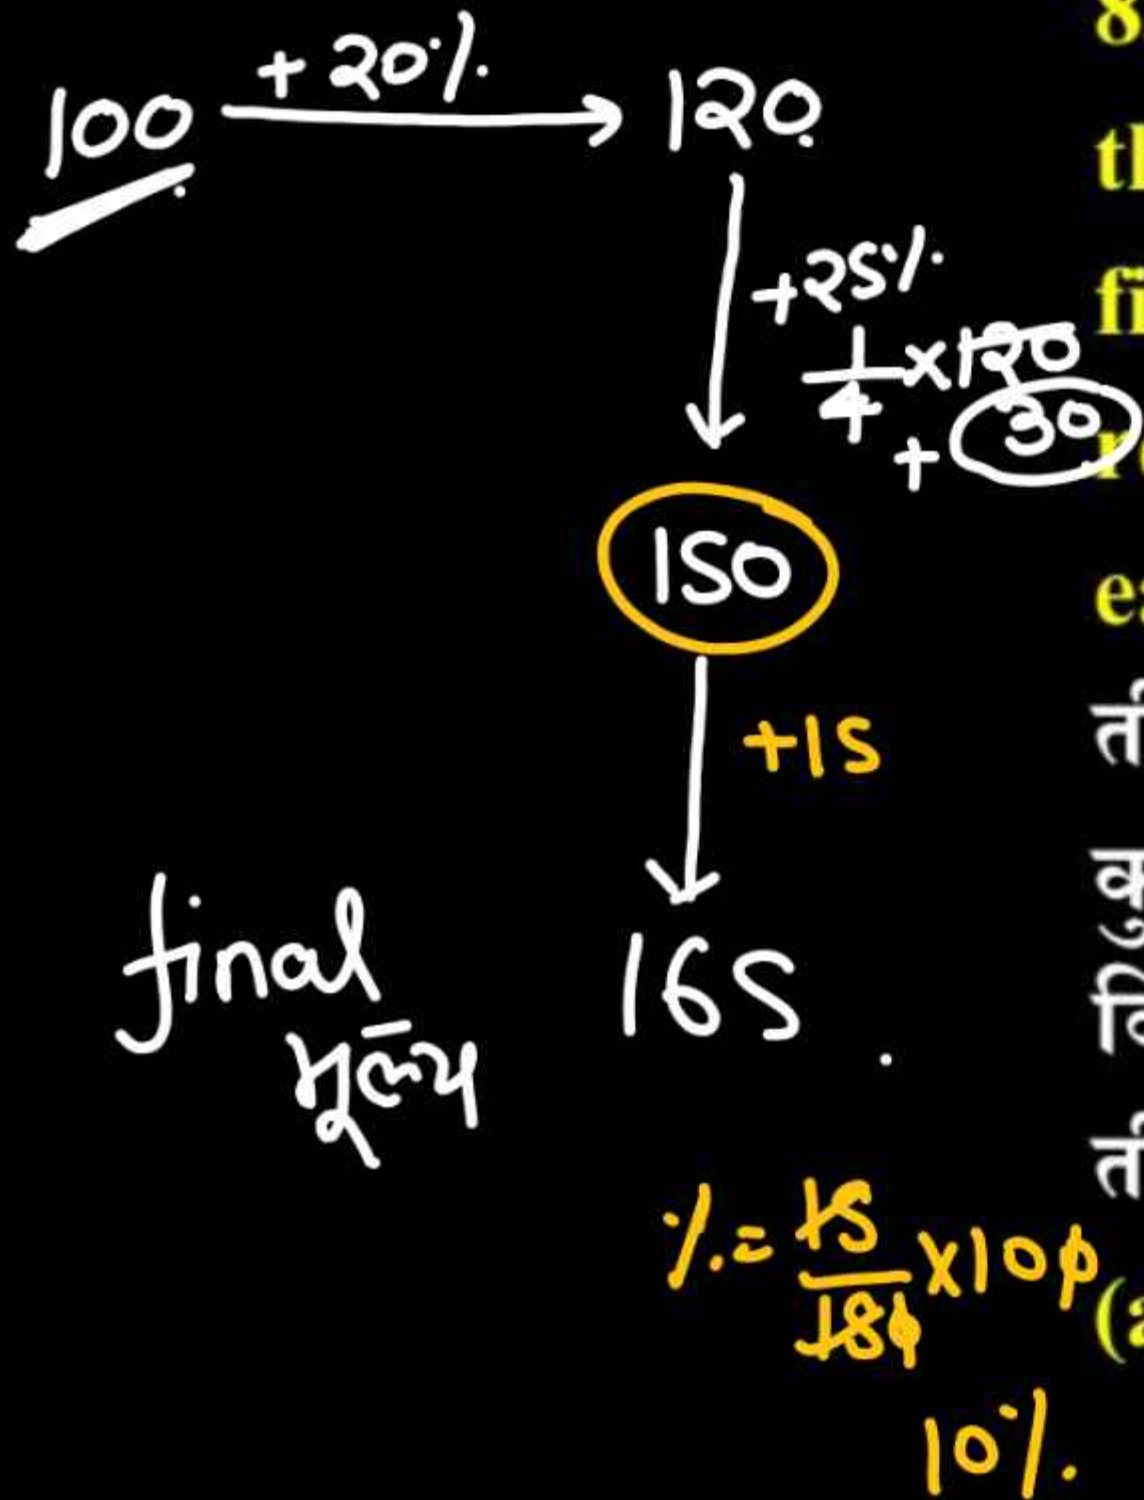 100 + 20% → 120
+25%
1/4 × 120
+ 30
150
+15
165
final
मूल्य
% = 15/150 × 100
10%